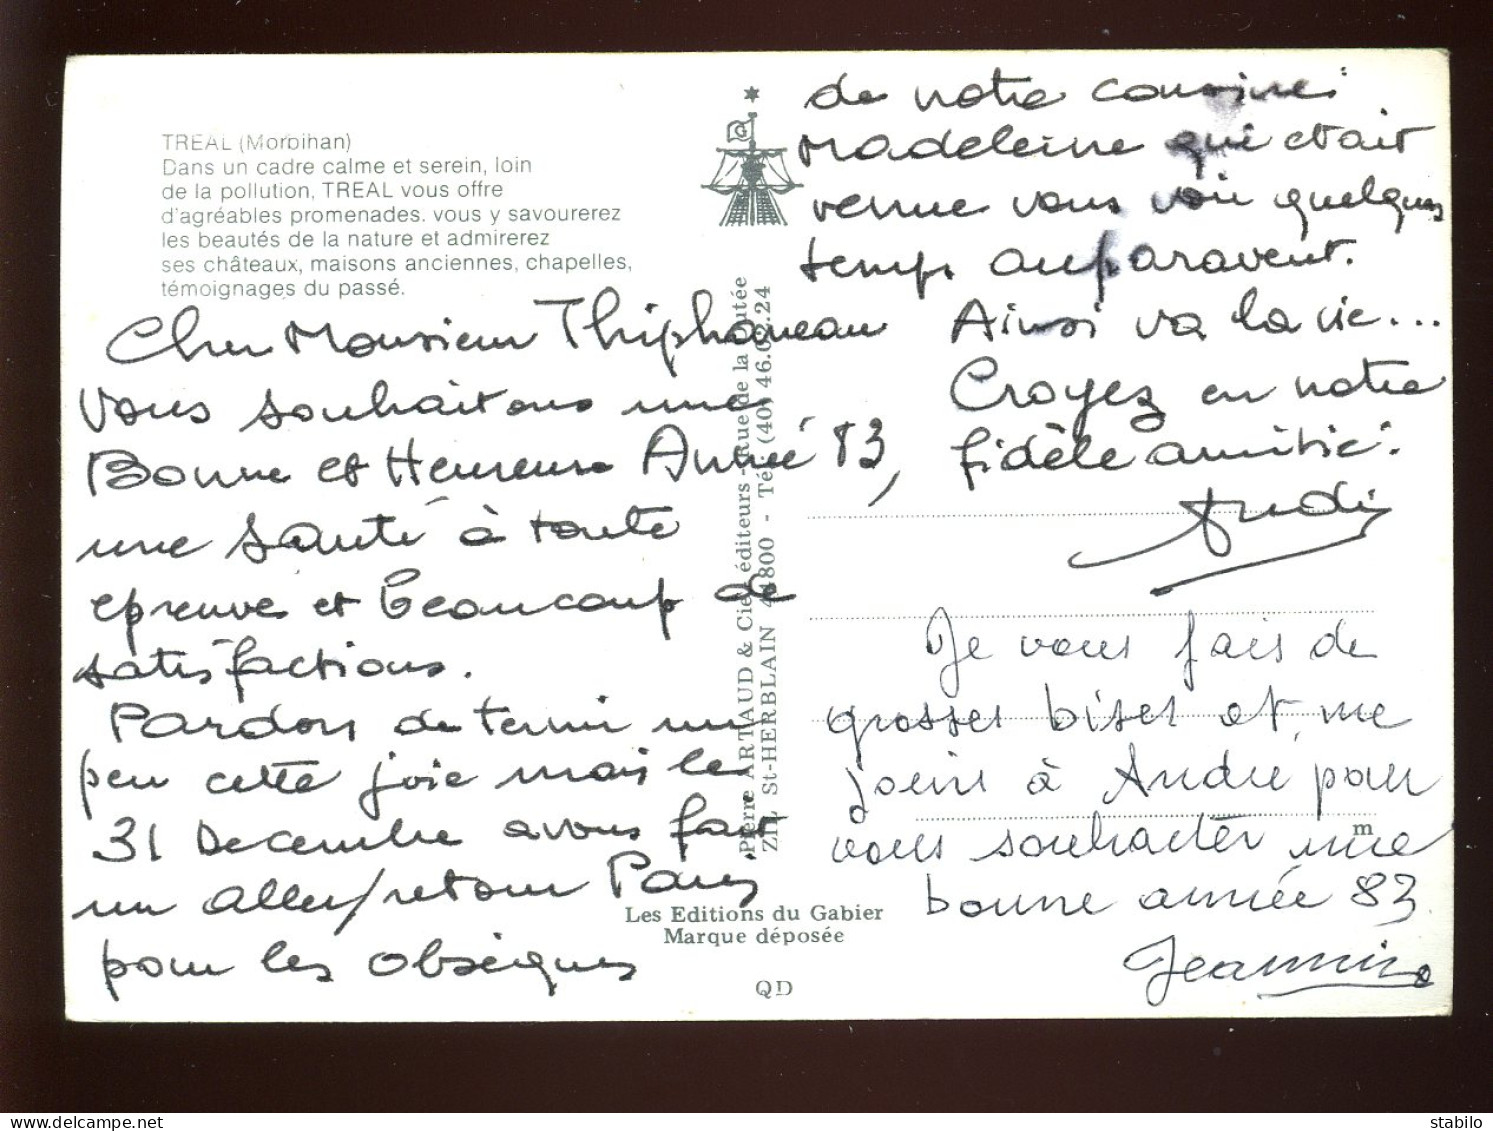 TREAL (Morbihan)
Dans un cadre calme et serein, loin
de la pollution, TREAL vous offre
d'agréables promenades. vous y savourerez
les beautés de la nature et admirerez
ses châteaux, maisons anciennes, chapelles,
témoignages du passé.
Cher Monsieur Thiphaneau
Vous souhaitons une
Bonne et Heureuse Année 83,
une santé à toute
epreuve et beaucoup de
satisfactions.
Pardon de ternir un
peu cette joie mais le
31 Decembre avons fait
un aller/retour Paris
pour les obsèques
de notre cousine
Madeleine qui etait
venue vous voir quelques
temps auparavent.
Ainsi va la vie...
Croyez en notre
fidèle amitié.
André
Je vous fais de
grosses bises et me
joins à André pour
vous souhaiter une
bonne année 83
Jeannine
Pierre ARTAUD & Cie éditeurs - Rue de la
ZIL St-HERBLAIN 44800 - Tél : (40) 46.02.24
m
Les Editions du Gabier
Marque déposée
QD
stabilo